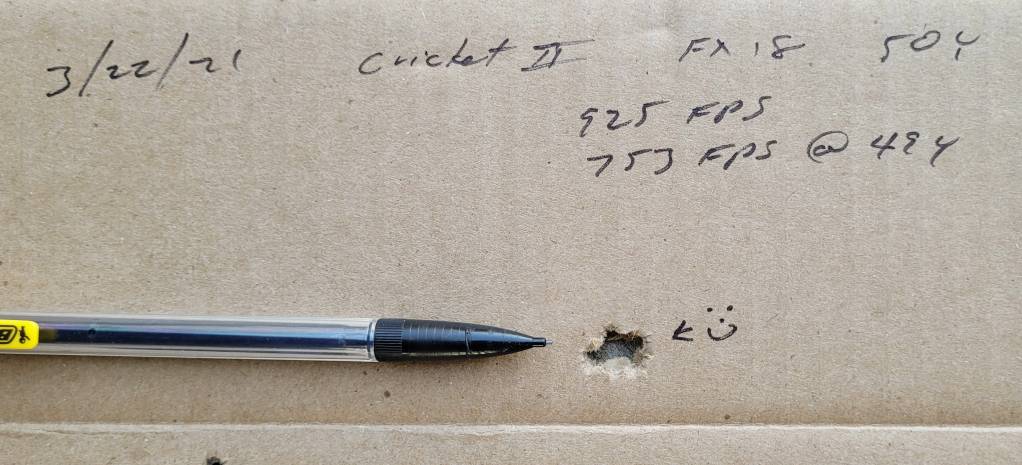 3/22/21 Cricket II FX 18 50Y
925 FPS
753 FPS @ 49Y
BIC